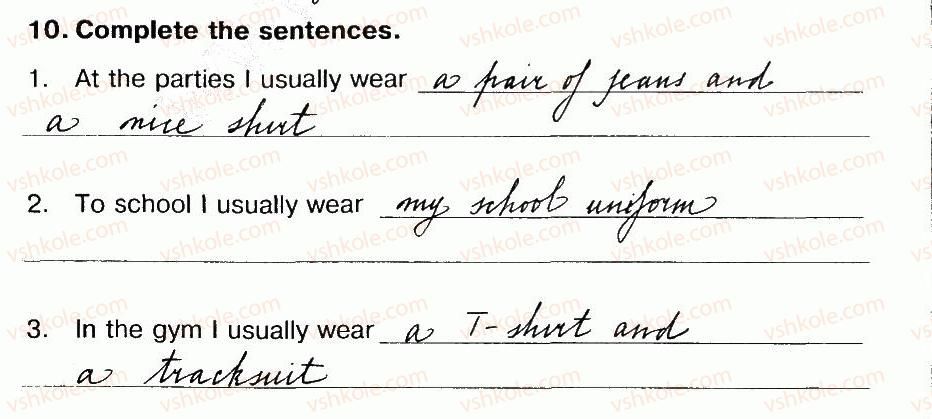 10. Complete the sentences.
1. At the parties I usually wear a pair of jeans and
a nice shirt
2. To school I usually wear my school uniform
3. In the gym I usually wear a T-shirt and
a tracksuit